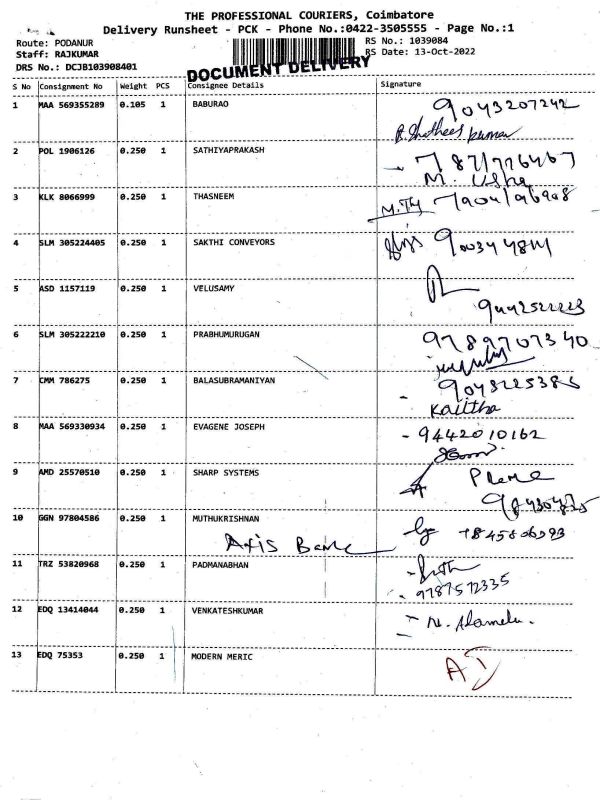 THE PROFESSIONAL COURIERS, Coimbatore
Delivery Runsheet - PCK - Phone No.:0422-3505555 - Page No.:1
Route: PODANUR
RS No.: 1039084
Staff: RAJKUMAR
RS Date: 13-Oct-2022
DRS No.: DCJB103908401
DOCUMENT DELIVERY
S No Consignment No Weight PCS Consignee Details Signature
1 MAA 569355289 0.105 1 BABURAO 9043207242
2 POL 1906126 0.250 1 SATHIYAPRAKASH
M. Usha
3 KLK 8066999 0.250 1 THASNEEM
4 SLM 305224405 0.250 1 SAKTHI CONVEYORS
5 ASD 1157119 0.250 1 VELUSAMY
6 SLM 305222210 0.250 1 PRABHUMURUGAN 9789707340
7 CMM 786275 0.250 1 BALASUBRAMANIYAN
Kavitha
8 MAA 569330934 0.250 1 EVAGENE JOSEPH - 9442010162
9 AMD 25570510 0.250 1 SHARP SYSTEMS
10 GGN 97804586 0.250 1 MUTHUKRISHNAN
Axis Bank
11 TRZ 53820968 0.250 1 PADMANABHAN
9787572335
12 EDQ 13414044 0.250 1 VENKATESHKUMAR - N. Alamelu.
13 EDQ 75353 0.250 1 MODERN MERIC